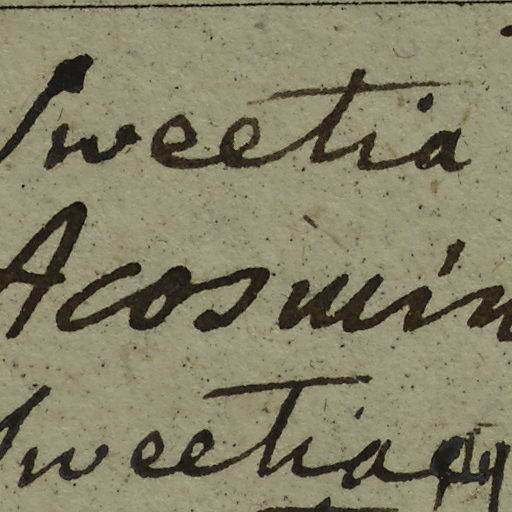 Sweetia
Acosmin
Sweetia